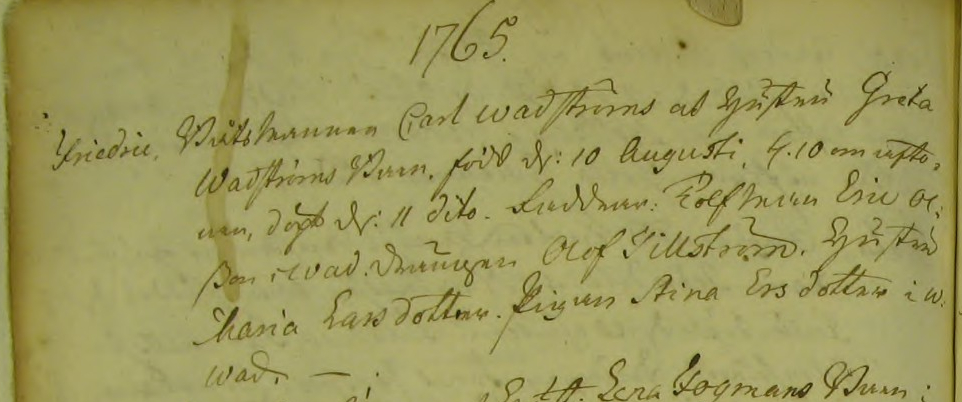 1765.
Friedric, Båtsmannen Carl Wadströms et Hustru Greta
Wadströms Barn, född d: 10 Augusti, kl. 10 om afto-
nen, döpt d: 11 dito. Faddrar: Rolfman Eric Ol:
son i Wad. Drängen Olof Tillström. Hustru
Maria Larsdotter. Pigan Stina Ersdotter i W:
wad. —
Lena Fogmans Barn: